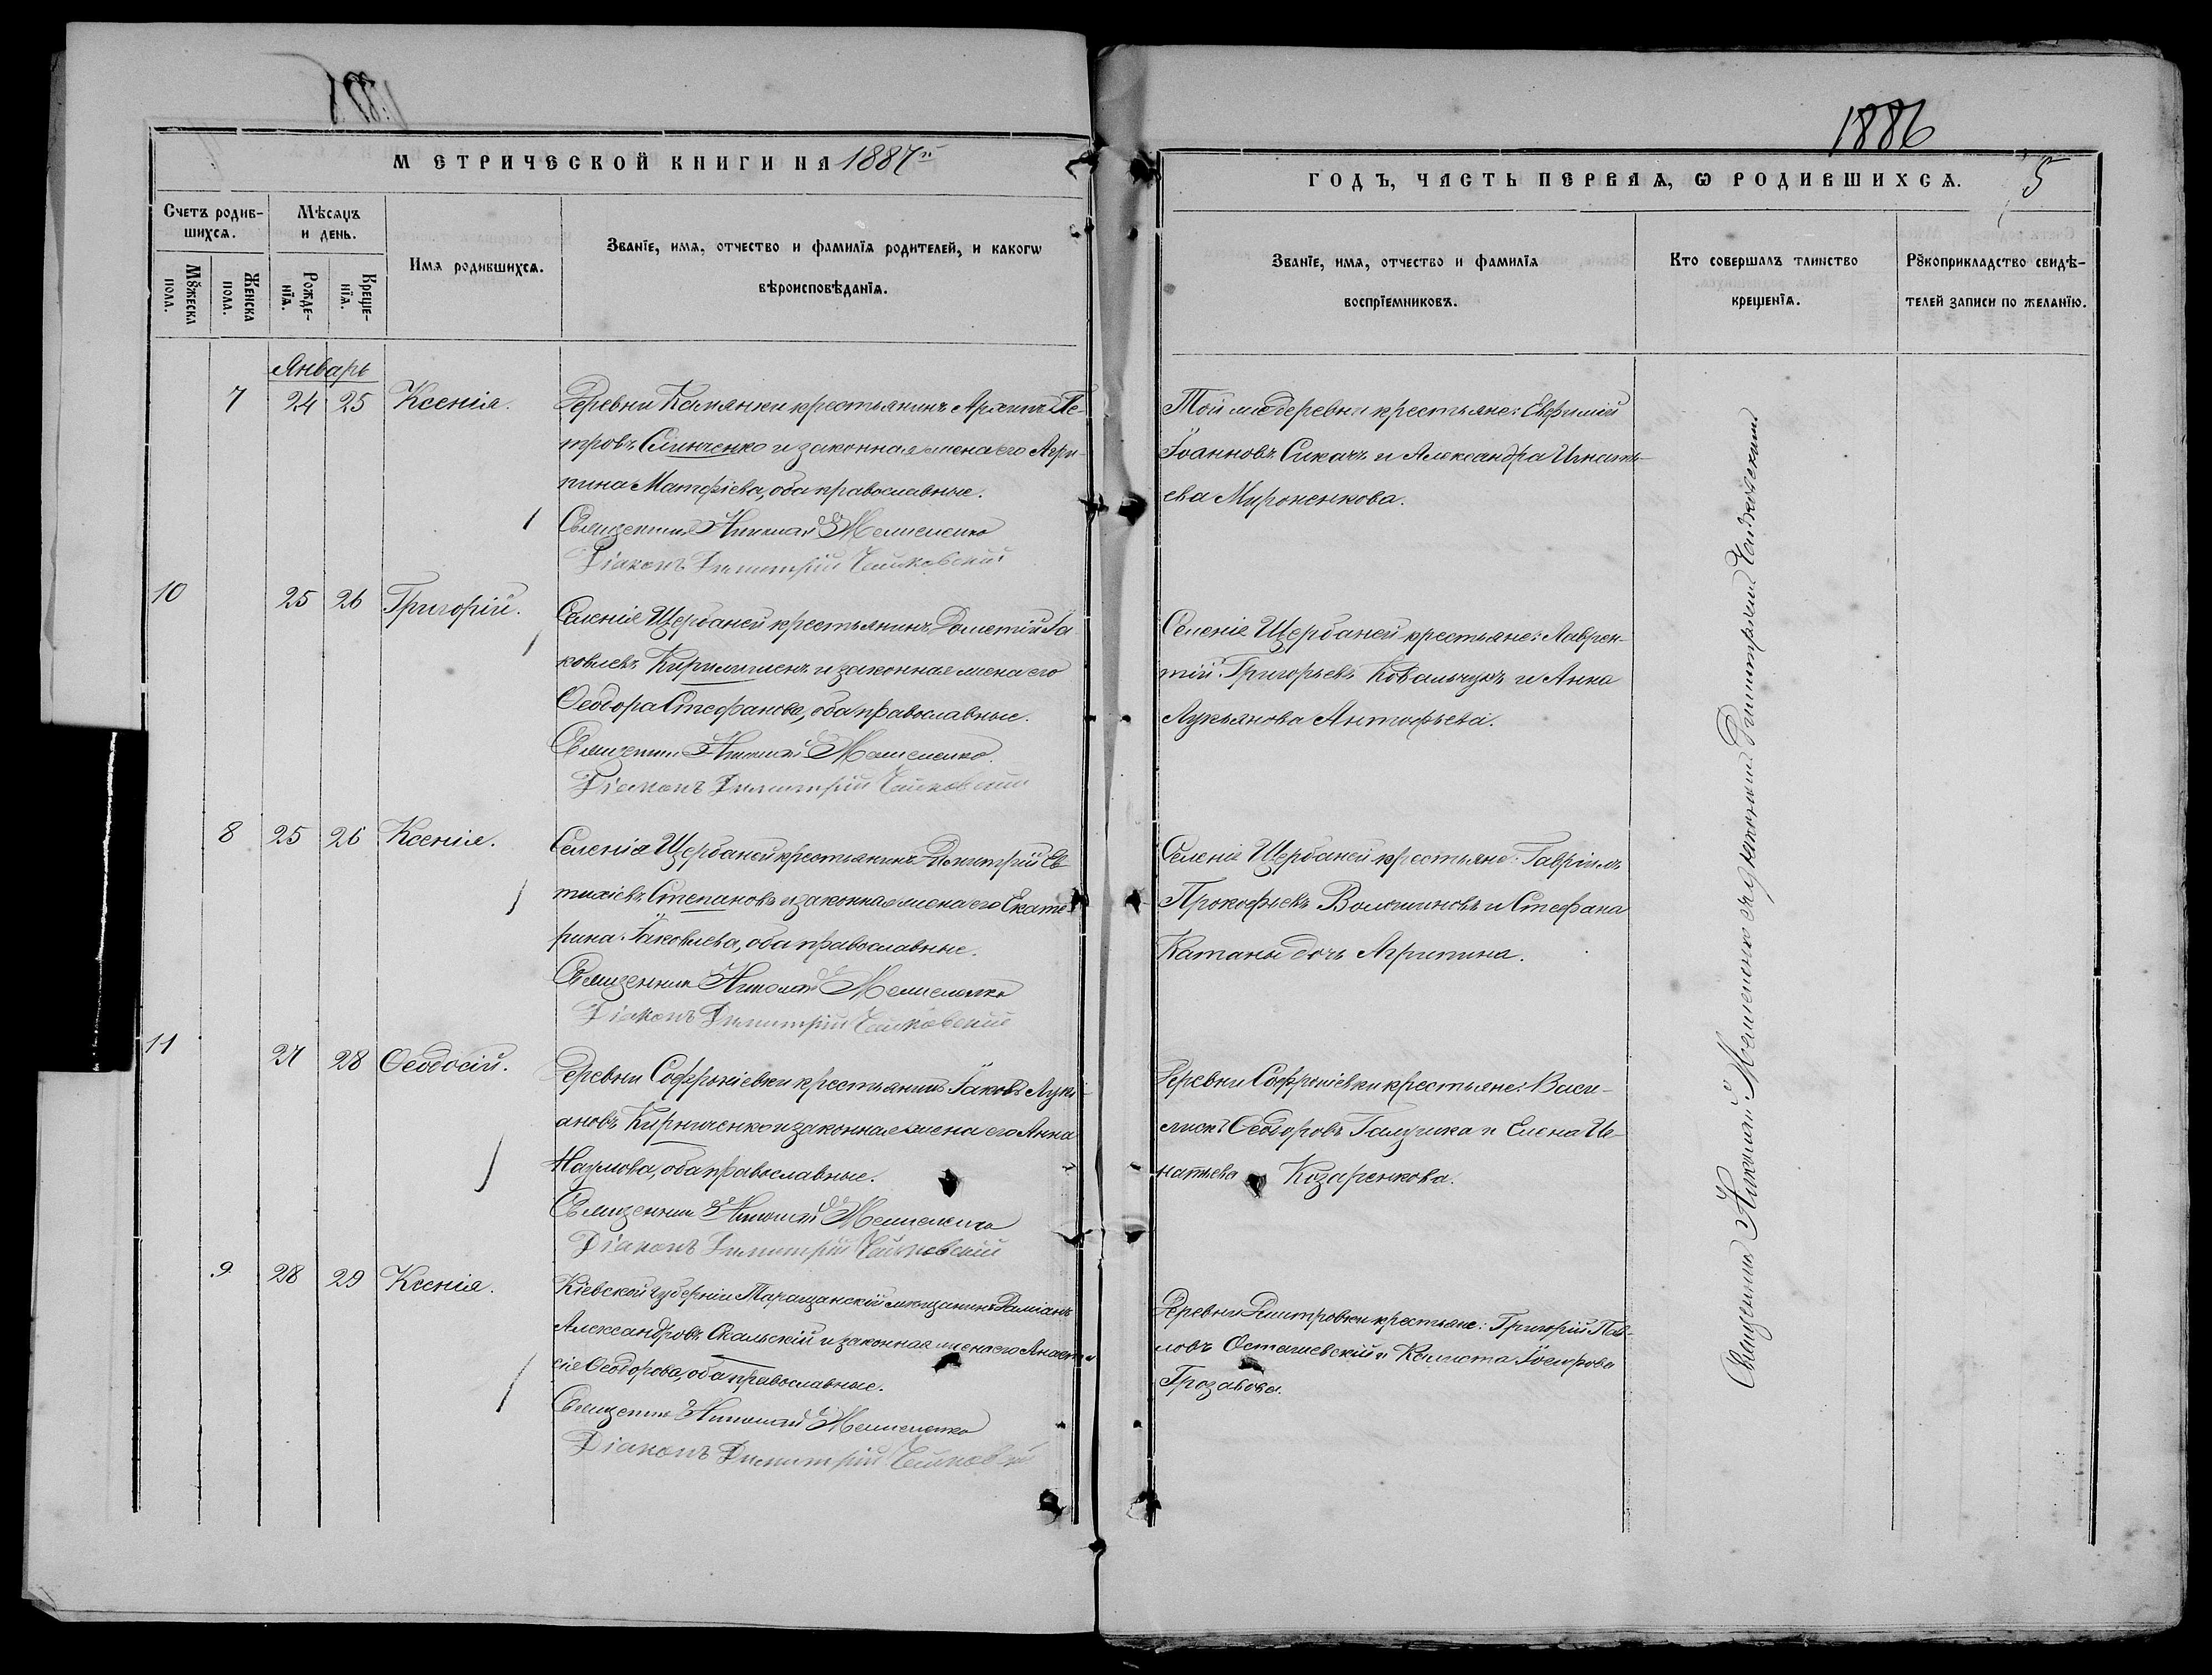 1886
МЕТРИЧЕСКОЙ КНИГИ НА 1887й
ГОДЪ, ЧАСТЬ ПЕРВАѦ, Ѡ РОДИВШИХСѦ. 5
Счетъ родив-
шихсѧ.
Мꙋжеска
пола.
Женска
пола.
Мѣсѧцъ
и день.
Рожде-
нїѧ.
Креще-
нїѧ.
Имѧ родившихсѧ.
Званїе, имѧ, отчество и фамилїѧ родителей, и какогѡ
вѣроисповѣданїѧ.
Званїе, имѧ, отчество и фамилїѧ
воспрїемниковъ.
Кто совершалъ таинство
крещенїѧ.
Рꙋкоприкладство свидѣ-
телей записи по желанїю.
Январь
7 24 25 Ксенія.
Деревни Камянки крестьянинъ Архипъ Пе-
тровъ Слинченко и законная жена его Агри-
пина Матфіева, оба православные.
Священникъ Николай Мелисенко
Діаконъ Димитрій Чайковскій
Той же деревни крестьяне: Евфимій
Іоанновъ Сикачъ и Александра Игнать-
ева Мироненкова.
10 25 26 Григорій.
Селенія Щербаней крестьянинъ Дометій Іа
ковлевъ и законная жена его
Ѳеодора Стефанова, оба православные.
Священникъ Николай Мелисенко
Діаконъ Димитрій Чайковскій
Селенія Щербаней крестьяне: Лаврен-
тій Григорьевъ Ковальчукъ и Анна
Лукьянова
8 25 26 Ксенія.
Селенія Щербаней крестьянинъ Димитрій Ев
тихіевъ Степановъ и законная жена его Екате
рина Іаковлева, оба православные.
Священникъ Николай Мелисенко
Діаконъ Димитрій Чайковскій
Селенія Щербаней крестьяне: Гавріилъ
Прокофьевъ Волошиновъ и Стефана
Катаны дочь Агрипина.
11 27 28 Ѳеодосій.
Деревни Софроніевки крестьянинъ Іаковъ Лукі-
ановъ Кирниченко и законная жена его Анна
Наумова, оба православные.
Священникъ Николай Мелисенко
Діаконъ Димитрій Чайковскій
Деревни Софроніевки крестьяне: Васи-
лискъ Ѳеодоровъ Галушка и Елена Иг-
натьева Козаренкова.
9 28 29 Ксенія.
Кіевской губерніи Таращанскій мѣщанинъ Даміанъ
Александровъ Скальскій и законная жена его Анаста
сія Ѳеодорова, оба православные.
Священникъ Николай Мелисенко
Діаконъ Димитрій Чайковскій
Деревни Дмитровки крестьяне: Григорій Пав-
ловъ Осташевскій и Іосифова
Грозавова.
Священникъ Николай Мелисенко съ діакономъ Димитріемъ Чайковскимъ